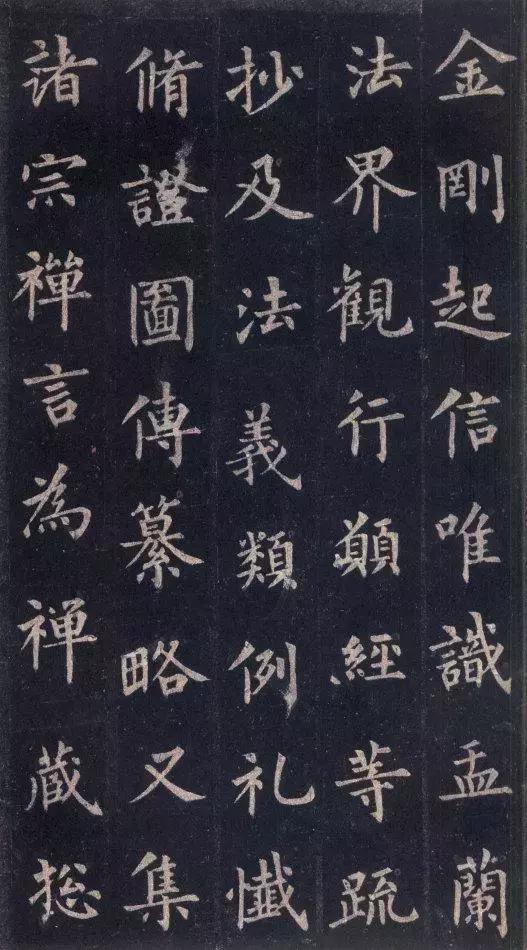 金剛起信唯識盂蘭
法界觀行願經等疏
抄及法義類例礼懺
脩證圖傳纂略又集
諸宗禪言為禅蔵捴